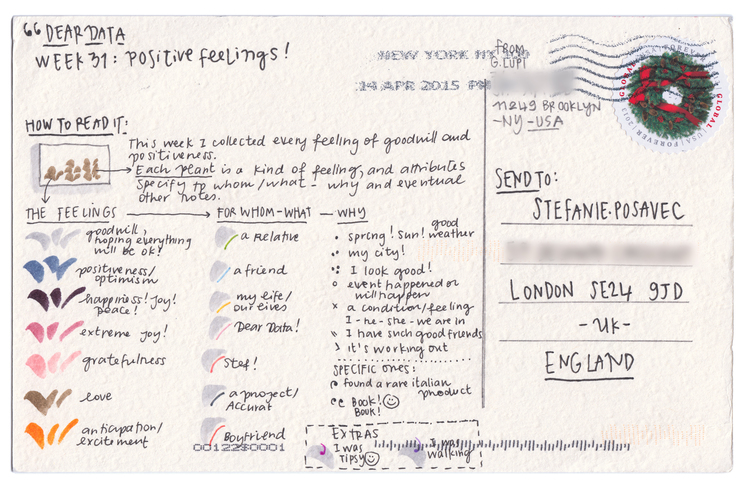 DEAR DATA
WEEK 31: POSITIVE FEELINGS!
NEW YORK NY 100
14 APR 2015 PM
FROM
G. LUPI
11249 BROOKLYN
-NY-USA
USA FOREVER
GLOBAL
HOW TO READ IT:
This week I collected every feeling of goodwill and
positiveness.
Each plant is a kind of feeling, and attributes
specify to whom/what - why and eventual
other notes.
THE FEELINGS
goodwill,
hoping everything
will be ok!
positiveness/
optimism
happiness! joy!
peace!
extreme joy!
gratefulness
love
anticipation/
excitement
FOR WHOM-WHAT
a relative
a friend
my life/
our lives
Dear Data!
Stef!
a project/
Accurat
Boyfriend
WHY
spring! sun! good weather
my city!
I look good!
event happened or
will happen
a condition/feeling
I-he-she-we are in
I have such good friends
it's working out
SPECIFIC ONES:
found a rare italian
product
BOOK!
BOOK!
EXTRAS
I was
tipsy
I was
walking
SEND TO:
STEFANIE.POSAVEC
LONDON SE24 9JD
-UK-
ENGLAND